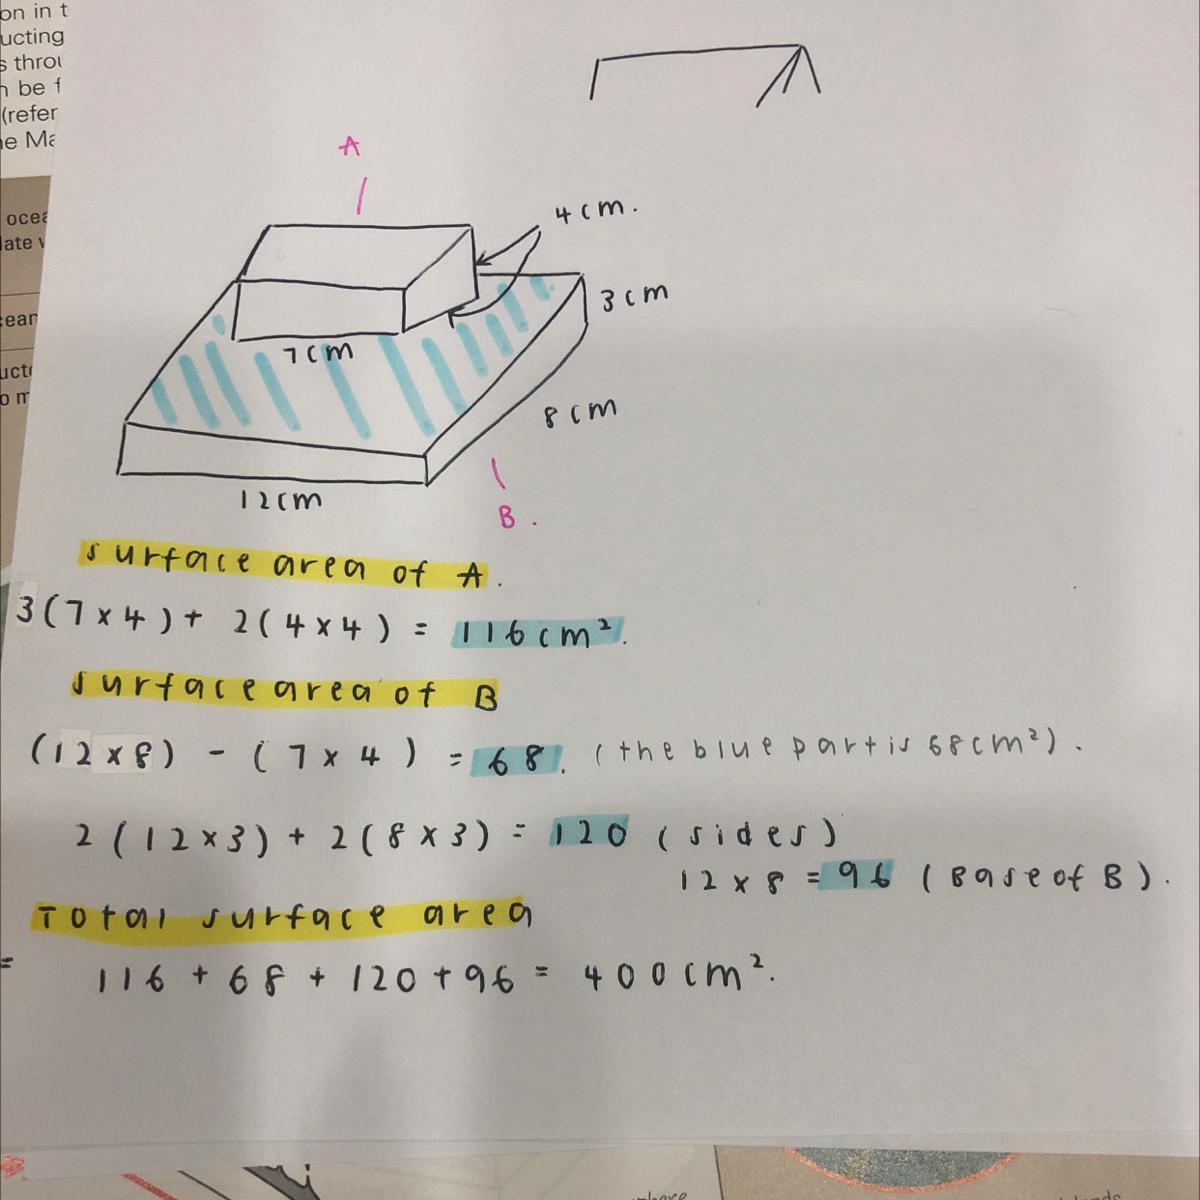 on in t
ucting
s throu
n be f
(refer
ne Ma
ocea
late w
cean
ucto
o m
A
4cm.
3cm
7cm
8cm
12cm
B.
surface area of A.
3(7×4)+ 2(4×4) = 116cm².
surface area of B
(12×8) - (7×4) = 68. (the blue part is 68cm²).
2(12×3) + 2(8×3) = 120 (sides)
12×8 = 96 (Base of B).
Total surface area
= 116 + 68 + 120 + 96 = 400cm².